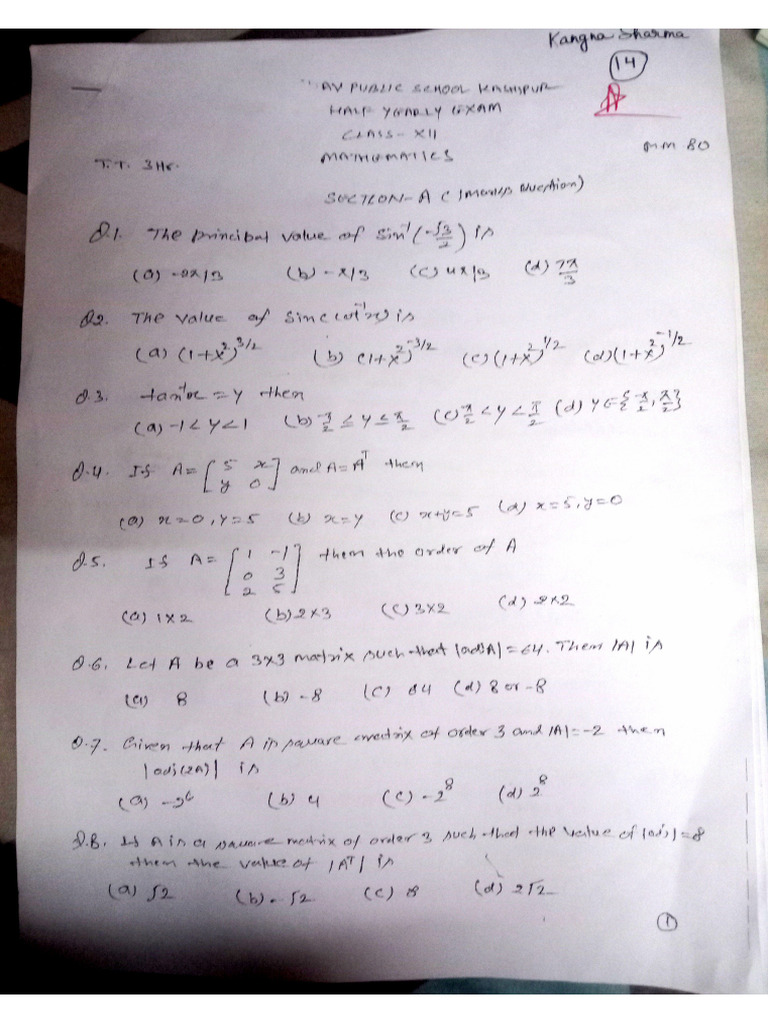 Kangna Sharma
14
AV PUBLIC SCHOOL KASHIPUR
HALF YEARLY EXAM
CLASS-XII
T.T. 3Hr. MATHEMATICS MM 80
SECTION-A (1 Marks Question)
Q1. The principal value of Sin⁻¹(-√3/2) is
(a) -2π/3 (b) -π/3 (c) 4π/3 (d) 2π/3
Q2. The value of Sin(cot⁻¹x) is
(a) (1+x²)^3/2 (b) (1+x²)^-3/2 (c) (1+x²)^1/2 (d) (1+x²)^-1/2
Q.3. tan⁻¹x = y then
(a) -1<y<1 (b) -π/2 ≤ y ≤ π/2 (c) -π/2 < y < π/2 (d) y∈{-π/2, π/2}
Q.4. If A = [5 x; y 0] and A = Aᵀ then
(a) x=0, y=5 (b) x=y (c) x+y=5 (d) x=5, y=0
Q.5. If A = [1 -1; 0 3; 2 5] then the order of A
(a) 1×2 (b) 2×3 (c) 3×2 (d) 2×2
Q.6. Let A be a 3×3 matrix such that |adjA| = 64. Then |A| is
(a) 8 (b) -8 (c) 64 (d) 8 or -8
Q.7. Given that A is square matrix of order 3 and |A|=-2 then
|adj(2A)| is
(a) -2⁶ (b) 4 (c) -2⁸ (d) 2⁸
Q.8. If A is a square matrix of order 3 such that the value of |adj| = 8
then the value of |Aᵀ| is
(a) √2 (b) -√2 (c) 8 (d) 2√2
1